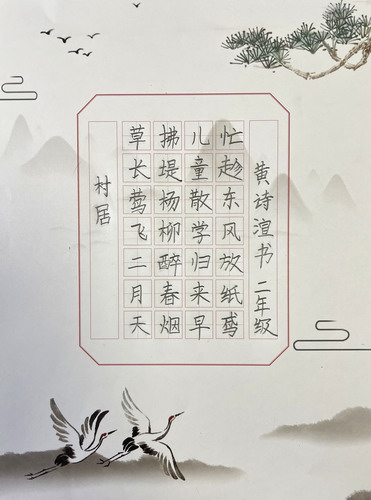 村居
草长莺飞二月天
拂堤杨柳醉春烟
儿童散学归来早
忙趁东风放纸鸢
黄诗渲书 二年级